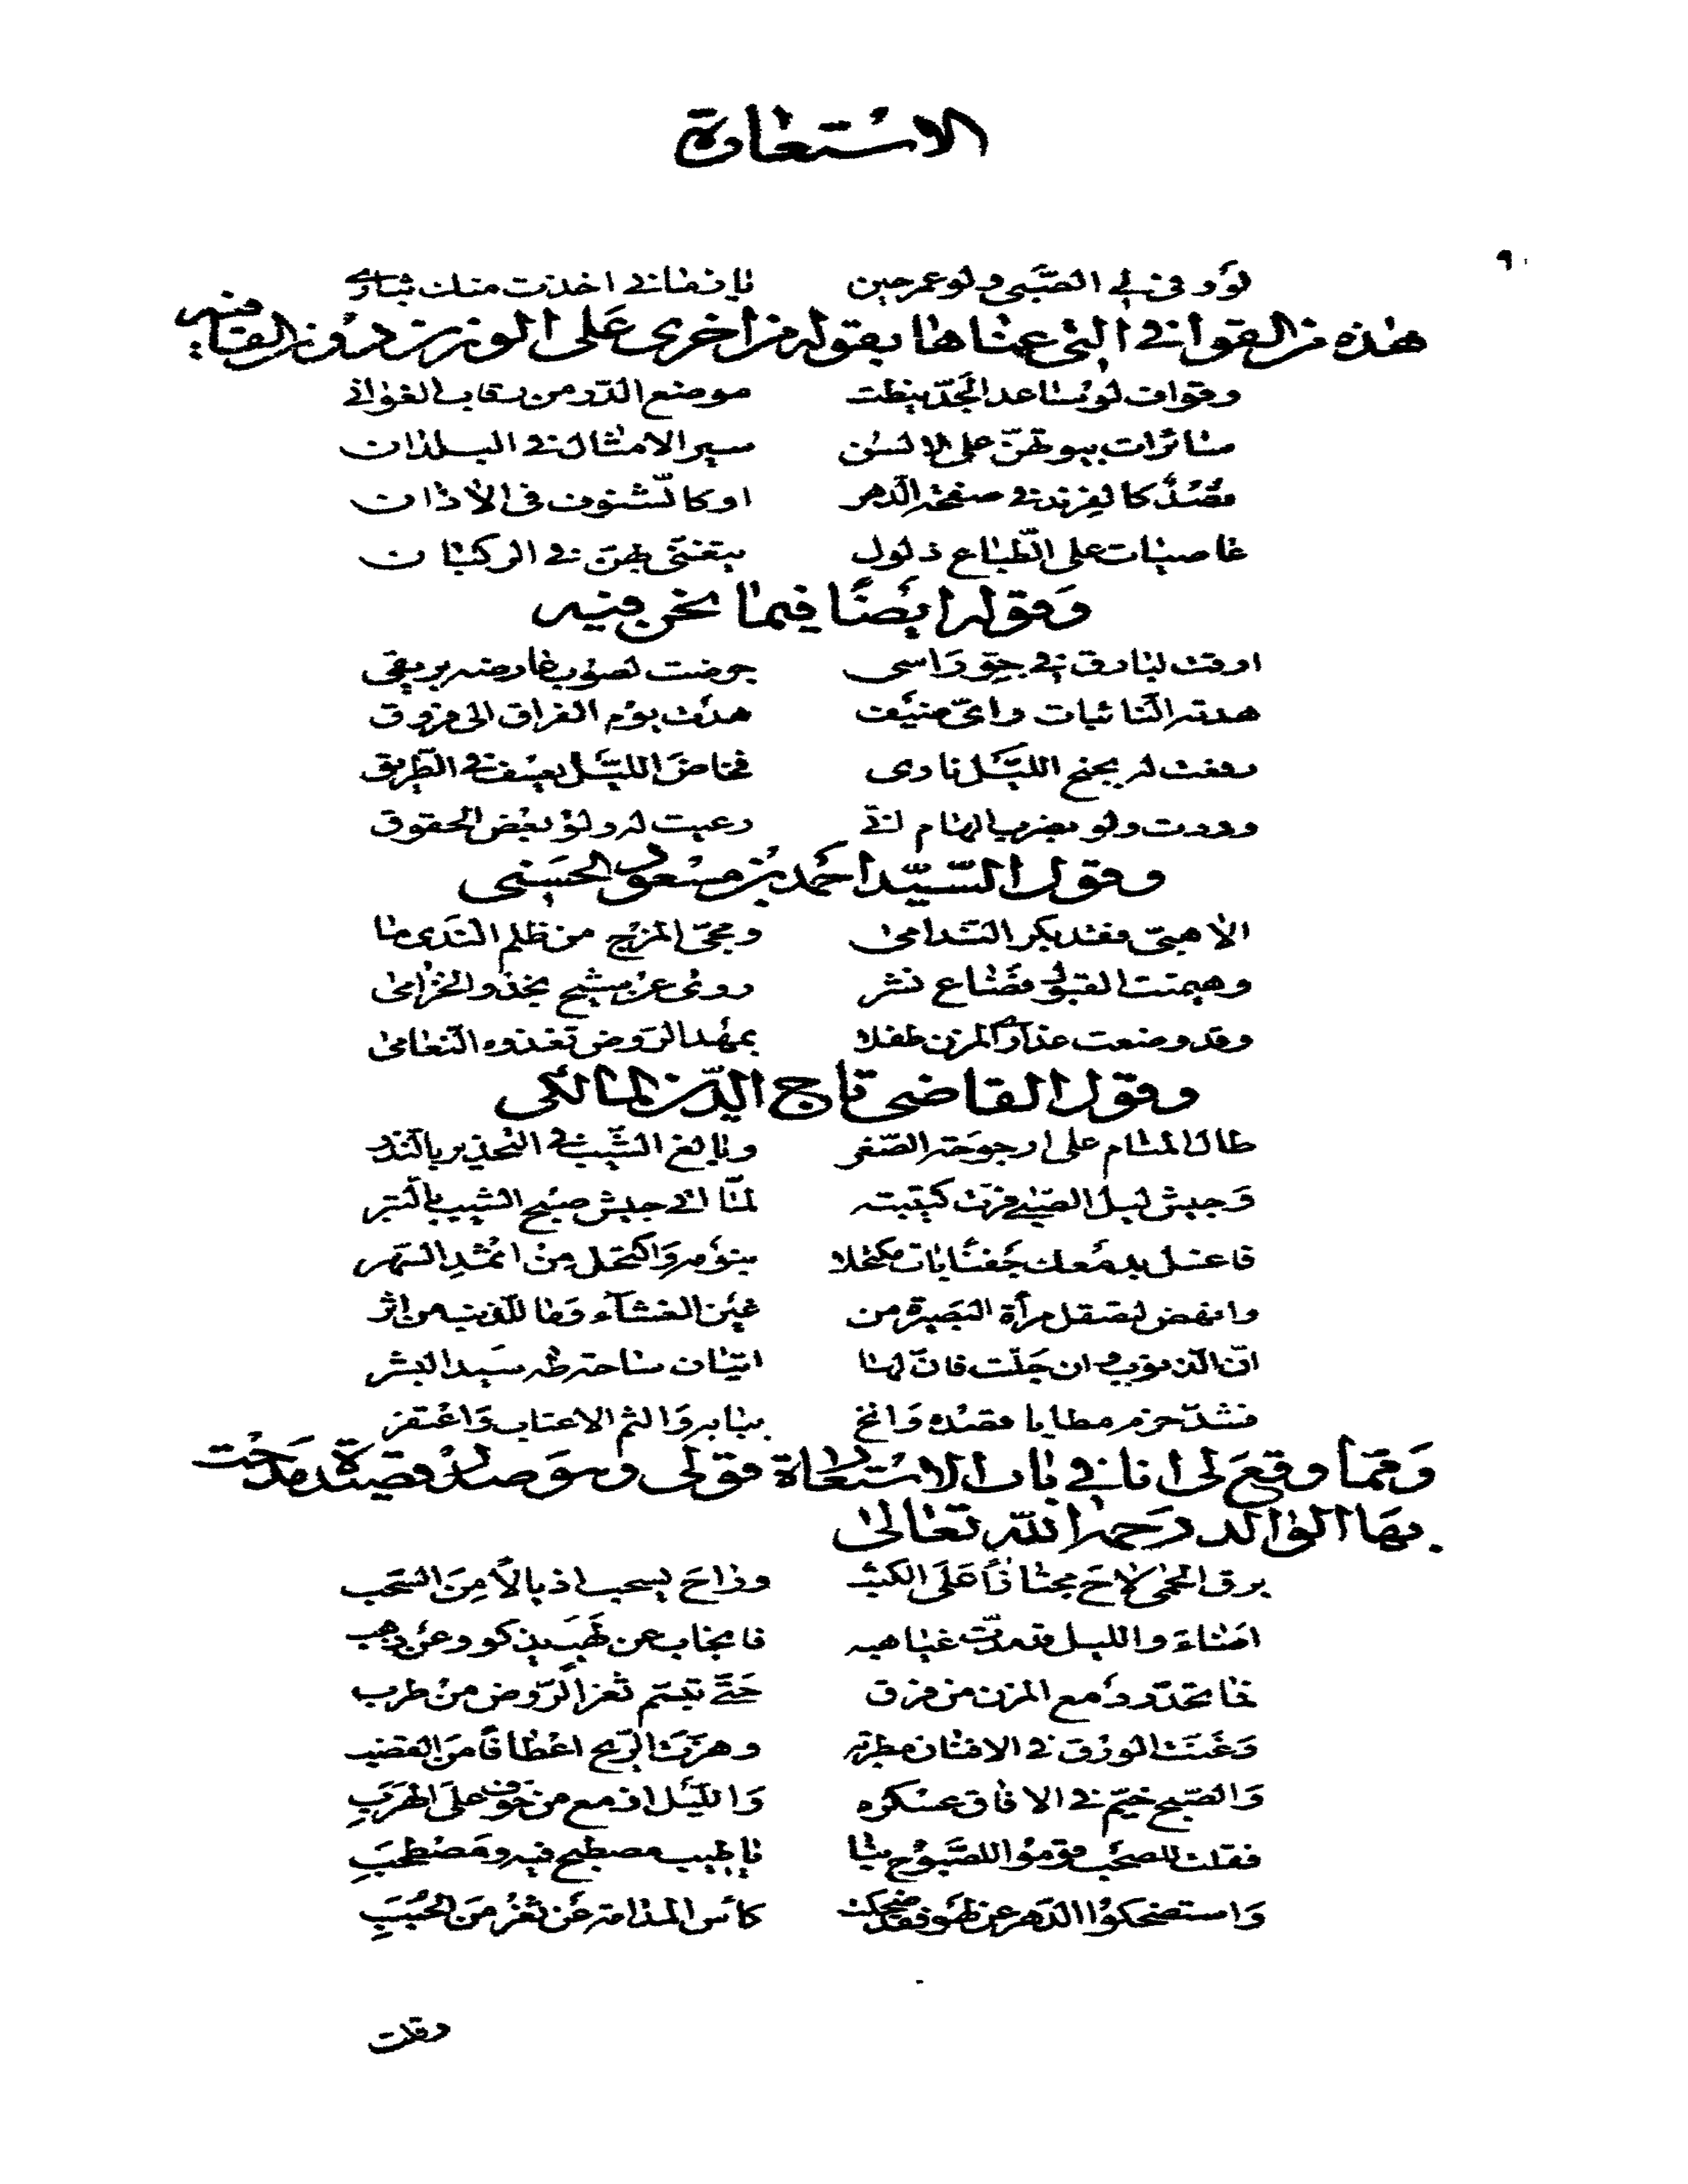 الاستعارة
٩٠
لو وفى لي الصبى ولو عمر حين يا زماني اخذت منك بثاري
هذه من القوافي التي عناها بقوله من اخرى على الوزن دون القافيه
وقواف لو يساعد الجدّ نيطت موضع الدّر من رقاب الغواني
سائرات بيوتهنّ على الالسن سير الامثال في البلدان
قُصُدٌ كالفرند في صفحة الدّهر او كالشنوف في الاذان
غاصبات على الطّباع ذلول يتغنّى بهنّ في الركبان
وَقوله ايضًا فيما نحن فيه
ارقت لبارق في جوّ رَاسى
هدته النّائبات واىّ ضيف هدَت يوم الفراق الى فروق
رفعت له بجنح الليّل نارى فخاض الليّل يعسف في الطّريق
وددت ولو بضرب الهام انّي رعيت له ولو بعض الحقوق
وقول السّيّد احمد بن مسعود الحسَني
الا هبّى فقد بكر النّدامى ومجّ المزج من ظلم النّدى ما
وهيمنت القبول فضاع نشر روى عن شيح نجد والخزامى
وقد وضعت عذارى المزن طفلا بمهد الرّوض تغذوه النّعامى
وقول القاضي تاج الدّين المالكي
طال المنام على ارجوحة الصّغر وبالغ الشّيب في التّحذير بالنّذر
وَجيش ليل الصّبى فرّت كتيبته لمّا اتى جيش صبح الشيب بالتّبر
فاغسل بدمعك جَفنًا بات مكتحلا بنومه وَاكتحل مِن اثمد السّهر
وانهض لصقل مرآة البَصيرة من غين الغشآء وَما للذنب من اثر
انّ الذّنوب وان جَلّت فانّ لها اتيان ساحة طٰه سَيد البشر
فشدّ حزم مطايا قصده وَانخ ببابه وَالثم الاعتاب وَاعْتفر
وَممّا وقعَ لى انا في باب الاستعارة قولى وهوَ صدر قصيدة مدَحْت
بهَا الوالد رَحمه الله تعالىٰ
برق الحمى لاحَ مجتازًا عَلَى الكثب وراحَ يسحب اذيالًا مِنَ السّحب
اضاءَ والليل قد مدّت غياهبه فانجاب عن لهَبٍ يذكو وعن ذهب
فما تحدّر دمع المزن من فرق حَتّى تبسّم ثغر الرّوض من طرب
وَغَنت الورق في الافنان مطربة وهزّت الرّيح اعْطافًا مِنَ القضب
وَالصّبح خيّم في الافاق عسكره وَالليّل ازمع من خوفٍ على الهرَبِ
فقلت للصّحب قوموا للصّبوح بنا يا طيب مصطبح فيه ومَصْطحَبِ
وَاستضحكوا الدّهر عن لهو فقد ضحكت كأس المدامة عَن ثغر منَ الحُبَبِ
وقلت